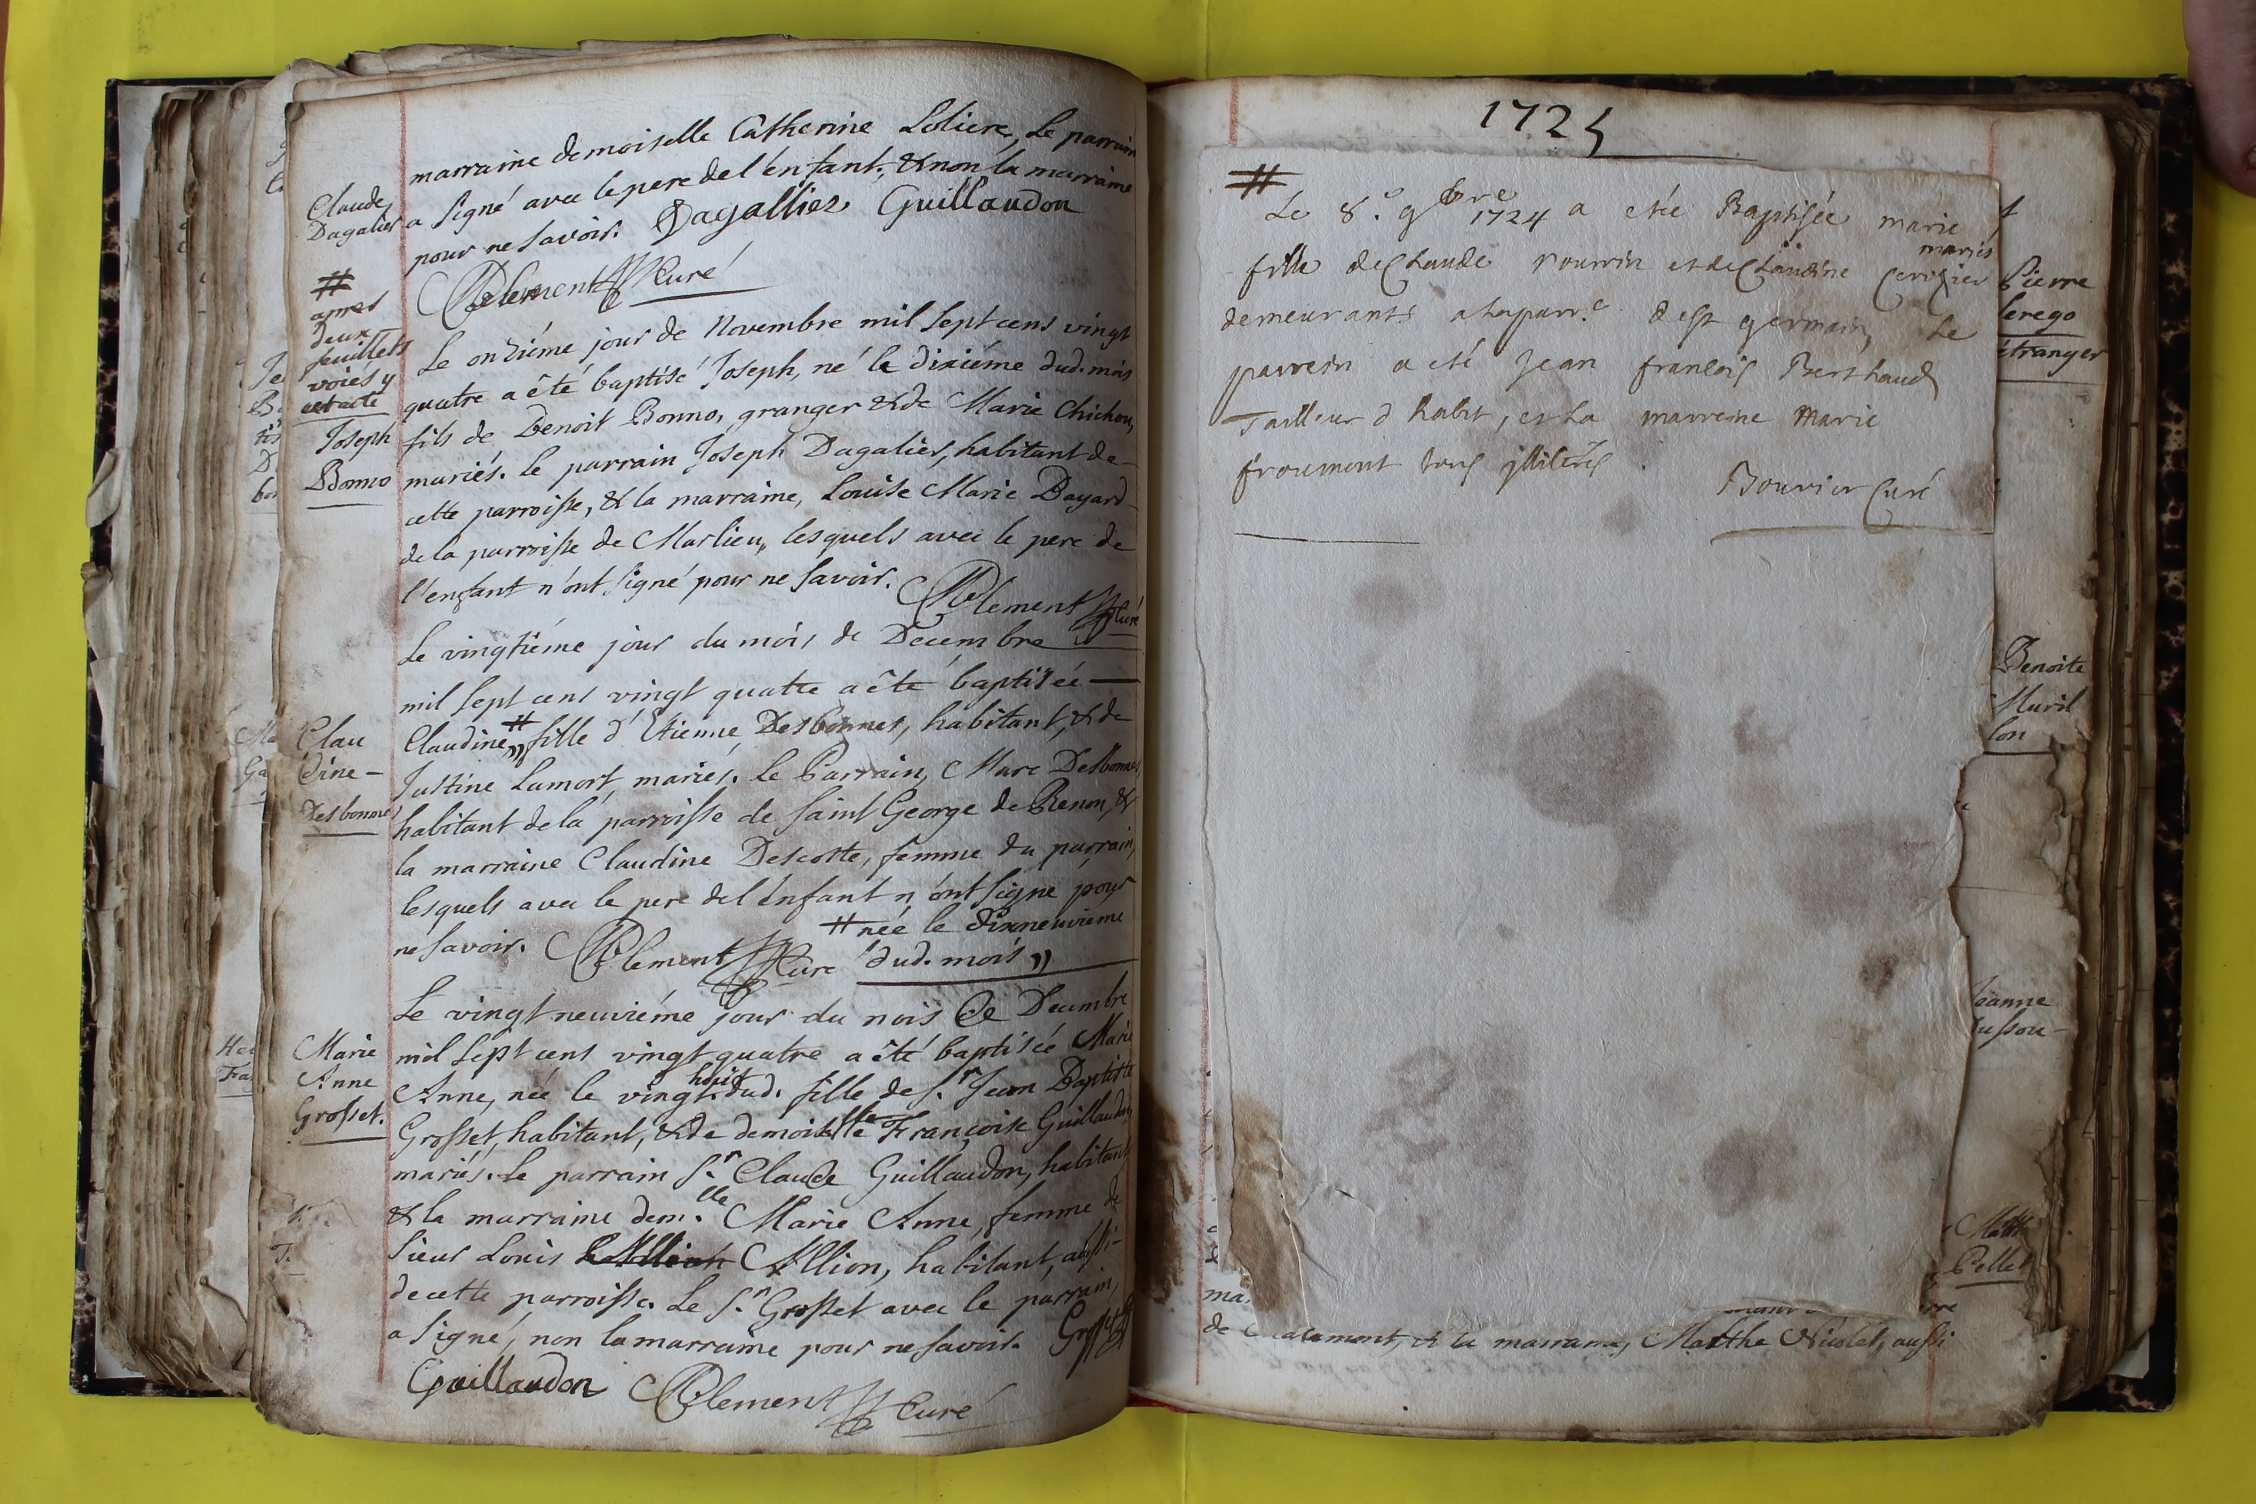 marraine demoiselle Catherine Loliere, Le parrain
a signé avec le pere de l'enfant, & non la marraine
pour ne savoir. Dagallier Guillaudon
Clement Curé
Claude
Dagalier
#
apres
deux
feuillets
voiés y
cet acte
Le onziéme jour de Novembre mil sept cens vingt
quatre a êté baptisé Joseph, né le dixiéme dud. mois
fils de Benoit Bonno, granger & de Marie Chichou,
mariés. le parrain Joseph Dagalier, habitant de
cette parroisse, & la marraine, Louise Marie Bayard
de la parroisse de Marlieu, lesquels avec le pere de
l'enfant n'ont signé pour ne savoir. Clement Curé
Joseph
Bonno
Le vingtiéme jour du mois de Decembre
mil sept cens vingt quatre a êté baptisée
Claudine # fille d'Etienne Desbonnes, habitant, & de
Justine Lamort, mariés. Le Parrain, Marc Desbonnes
habitant de la parroisse de Saint George de Renon, &
la marraine Claudine Descotte, femme du parrain,
lesquels avec le pere de l'enfant n'ont signé pour
ne savoir. Clement Curé
# née le dixneuvieme
dud. mois
Clau
dine -
Desbonnes
Le vingt neuviéme jour du mois de Decembre
mil sept cens vingt quatre a êté baptisée Marie
Anne, née le vingt huit dud. fille de S.r Jean Baptiste
Grosset, habitant, & de demoiselle Francoise Guillaudon,
mariés. Le parrain S.r Claude Guillaudon, habitant
& la marraine dem.lle Marie Anne, femme de
Sieur Louis Allion, habitant, aussi
de cette parroisse. Le S.r Grosset avec le parrain,
a signé, non la marraine pour ne savoir. Grosset
Guillaudon Clement Curé
Marie
Anne
Grosset.
1725
#
Le 8.e 9bre 1724 a etée Baptisée marie
fille de Claude pourrin et de Claudine Cerisier mariés
demeurants a la parr.e de St germain, Le
parrein a eté Jean francois Berthaud
Tailleur d habit, et la marreine Marie
froumont tous illiterés
Bouvier Curé
Pierre
étranger
Benoite
Muril
lon
Jeanne
Pellet
de Chalamont, & la marraine, Marthe Nicolet, aussi